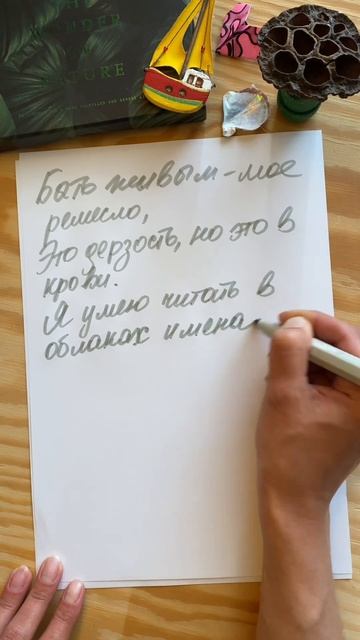 THE
WONDER
OF
NATURE
Быть живым – мое
ремесло,
Это дерзость, но это в
крови.
Я умею читать в
облаках имена